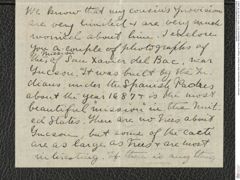 We know that my cousins Grierson
are very kindest & are very much
worried about him. I enclose
you a couple of photographs of
the mission of San Xavier del Bac, near
Tucson. It was built by the In
dians under the Spanish Padres
about the year 1687 & is the most
beautiful "mission" in the Unit
ed States. There are no trees about
Tucson, but some of the cacti
are as large as trees & are most
interesting. If there is anything